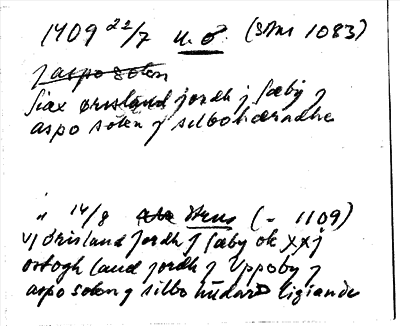 1409 22/7 u. o. (SDns 1083)
j aspo soten
siax örisland jordh j sæby j
aspo soten j silbohæradhe
" 14/8 Strns (- 1109)
vj örisland jordh j sæby ok xxj
örtogh land jordh j Uppoby j
aspo soten j silbo hüdarð ligiande